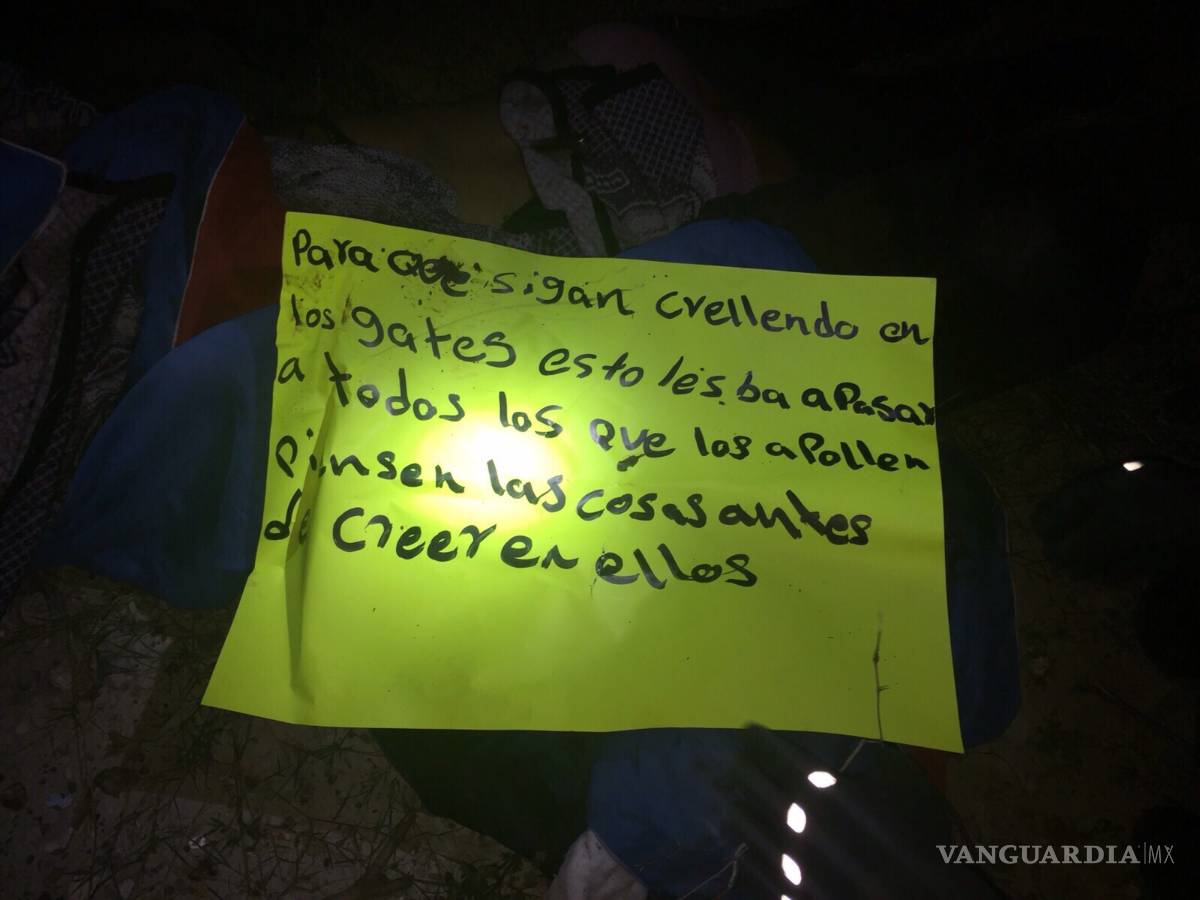 Para que sigan crellendo en
los gates esto les ba apasar
a todos los que los apollen
pinsen las cosas antes
de creer en ellos
VANGUARDIA|MX